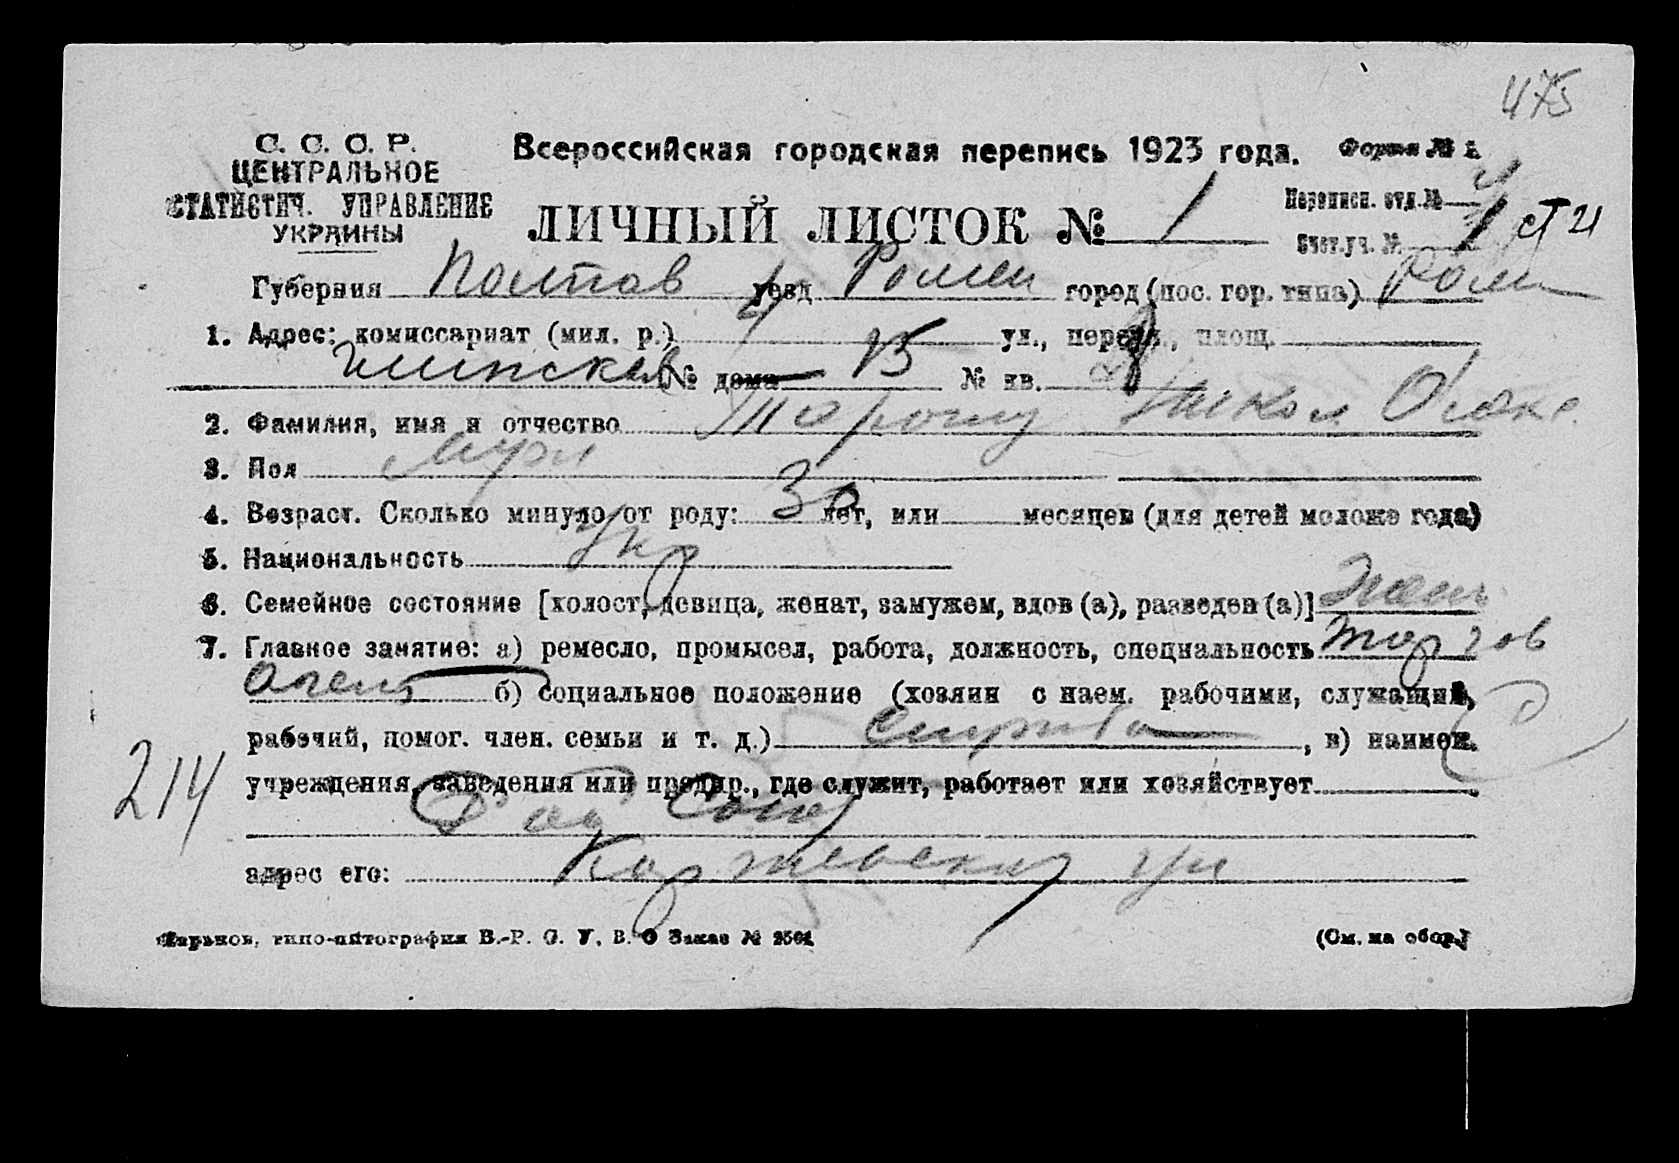 475
С. С. С. Р.
ЦЕНТРАЛЬНОЕ
СТАТИСТИЧ. УПРАВЛЕНИЕ
УКРАИНЫ
Всероссийская городская перепись 1923 года. Форма № 1.
ЛИЧНЫЙ ЛИСТОК № 1
Переписн. отд. №
Счет. уч. № 1
Губерния Полтав уезд Ромен город (пос. гор. типа) Ромн
1. Адрес: комиссариат (мил. р.) 4 ул., переул., площ.
№ дома 15 № кв.
2. Фамилия, имя и отчество Никол
3. Пол Муж
4. Возраст. Сколько минуло от роду: 30 лет, или месяцев (для детей моложе года)
5. Национальность Укр
6. Семейное состояние [холост, девица, женат, замужем, вдов (а), разведен (а)] Жен
7. Главное занятие: а) ремесло, промысел, работа, должность, специальность торгов
агент б) социальное положение (хозяин с наем. рабочими, служащий,
рабочий, помог. член. семьи и т. д.) , в) наимен.
214 учреждения, заведения или предпр., где служит, работает или хозяйствует
Союз
адрес его: ул
Харьков, типо-литография В.-Р. С. У. В. О Заказ № 2501
(См. на обор.)